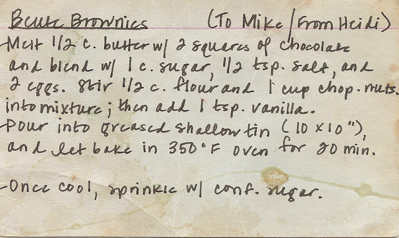 Beute Brownies (To Mike/From Heidi)
- Melt 1/2 c. butter w/ 2 squares of chocolate
and blend w/ 1 c. sugar, 1/2 tsp. salt, and
2 eggs. Stir 1/2 c. flour and 1 cup chop. nuts.
into mixture; then add 1 tsp. vanilla.
- Pour into greased shallow tin (10 x 10"),
and let bake in 350°F oven for 20 min.
- Once cool, sprinkle w/ conf. sugar.